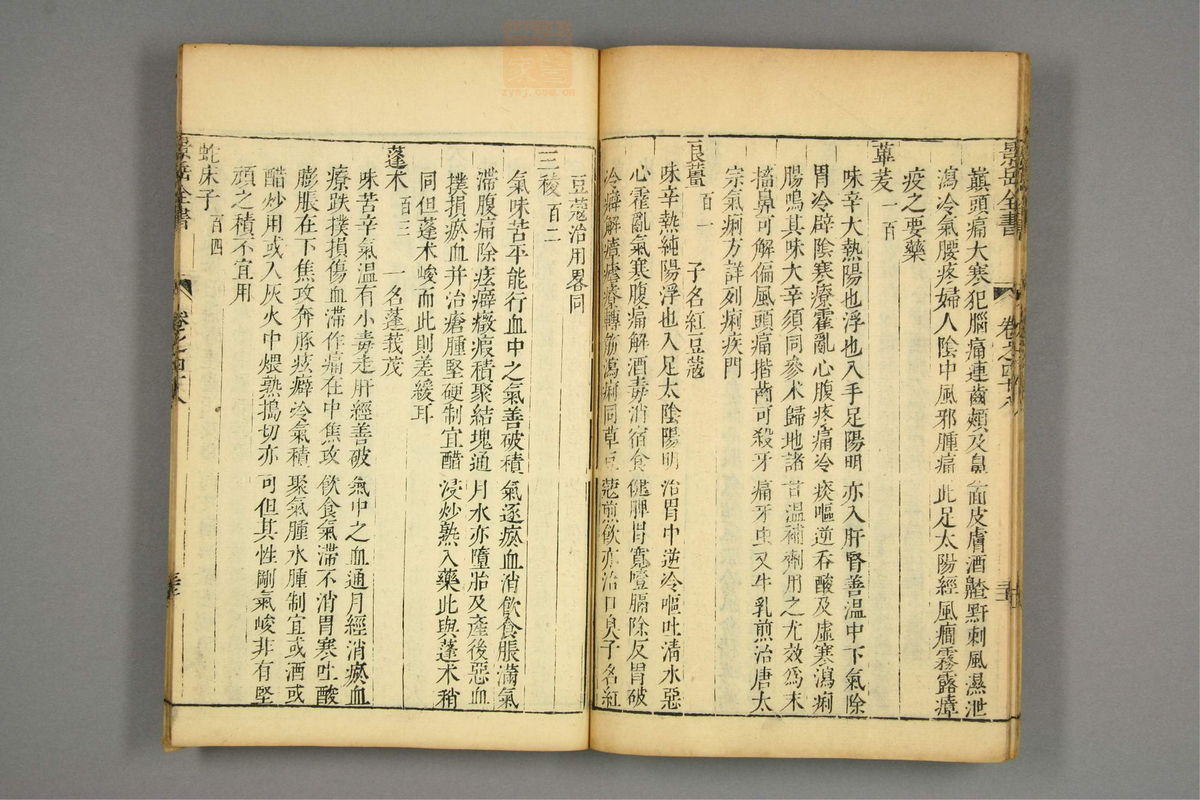 景岳全書 卷之四十八
巔頭痛大寒犯腦痛連齒頰及鼻面皮膚酒齄䵟刺風濕泄
瀉冷氣腰疼婦人陰中風邪腫痛此足太陽經風癎霧露瘴
疫之要藥
蓽茇一百
味辛大熱陽也浮也入手足陽明亦入肝腎善溫中下氣除
胃冷辟陰寒療霍亂心腹疼痛冷痰嘔逆吞酸及虛寒瀉痢
腸鳴其味大辛須同參术歸地諸甘溫補劑用之尤效爲末
搐鼻可解偏風頭痛揩齒可殺牙痛牙虫又牛乳煎治唐太
宗氣痢方詳列痢疾門
良薑百一 子名紅豆蔻
味辛熱純陽浮也入足太陰陽明治胃中逆冷嘔吐清水惡
心霍亂氣寒腹痛解酒毒消宿食健脾胃寬噎膈除反胃破
冷癖解瘴瘧療轉筋瀉痢同草豆蔻煎飲亦治口臭子名紅
豆蔻治用畧同
三稜百二
氣味苦平能行血中之氣善破積氣逐瘀血消飲食脹滿氣
滯腹痛除痃癖癥瘕積聚結塊通月水亦墮胎及產後惡血
撲損瘀血并治瘡腫堅硬制宜醋浸炒熟入藥此與蓬术稍
同但蓬术峻而此則差緩耳
蓬术百三 一名蓬莪茂
味苦辛氣溫有小毒走肝經善破氣中之血通月經消瘀血
療跌撲損傷血滯作痛在中焦攻飲食氣滯不消胃寒吐酸
膨脹在下焦攻奔豚痃癖冷氣積聚氣腫水腫制宜或酒或
醋炒用或入灰火中煨熟搗切亦可但其性剛氣峻非有堅
頑之積不宜用
蛇床子百四
景岳全書 卷之四十八